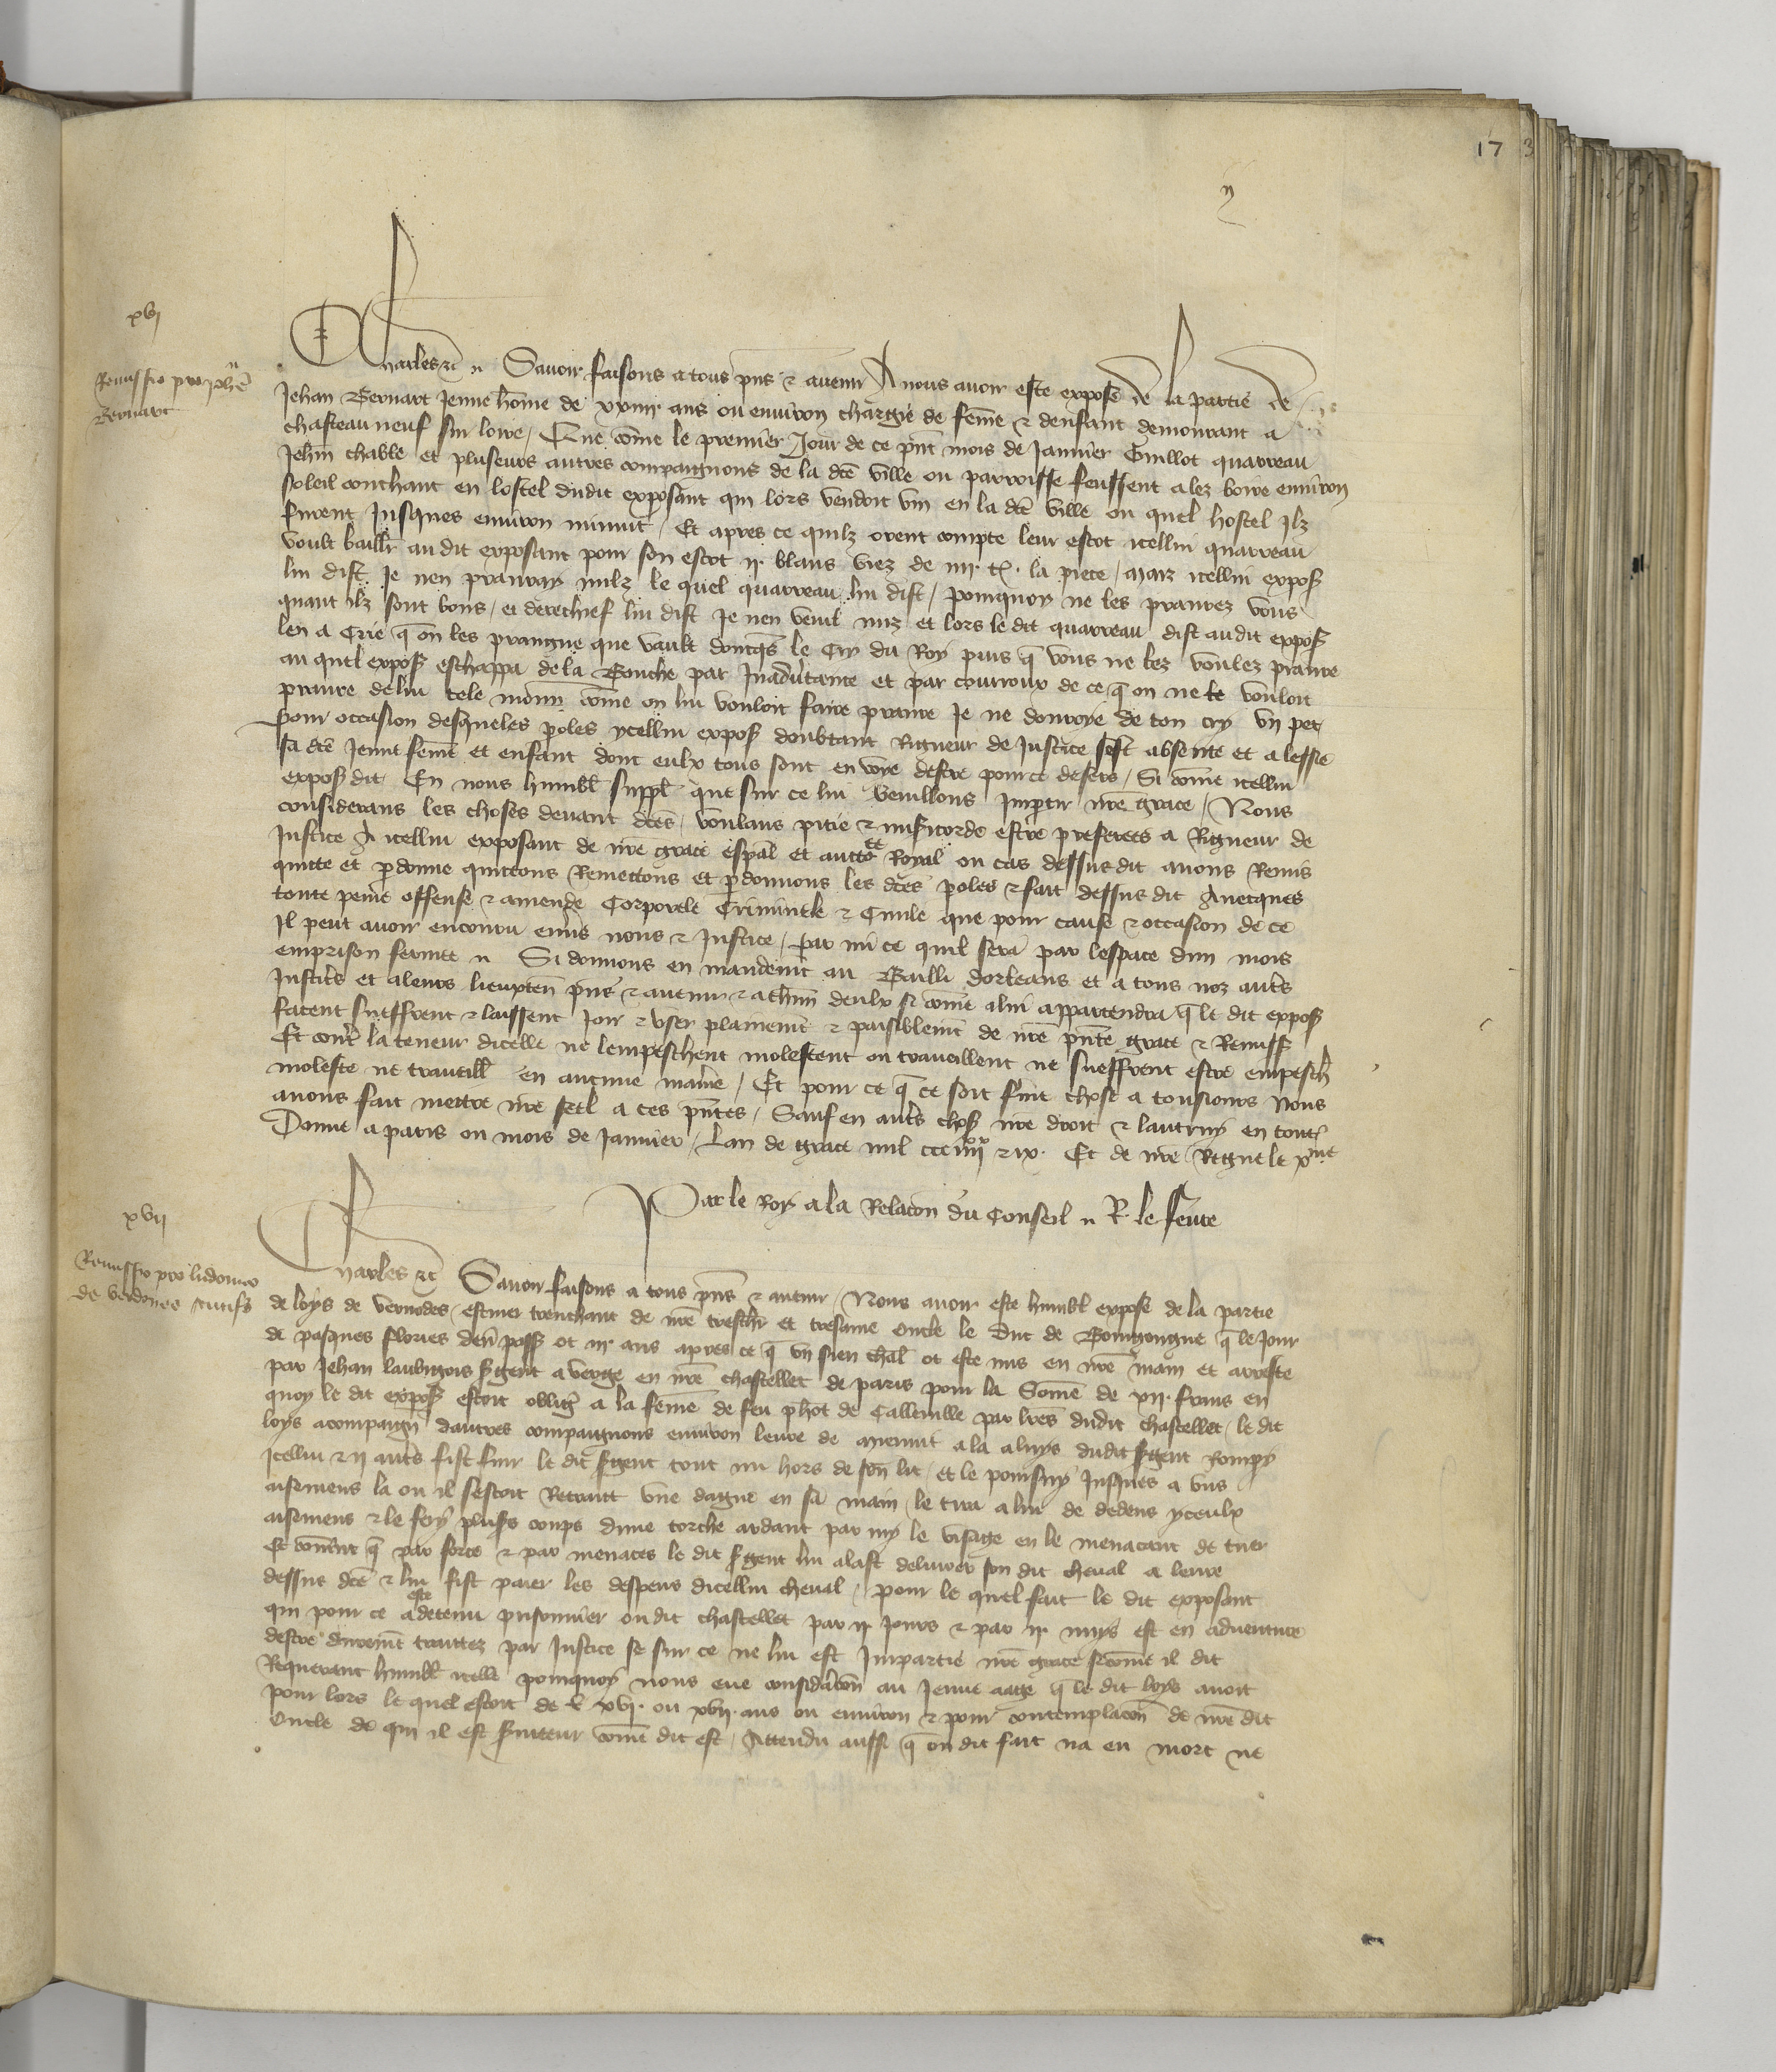 17 3
xvj
Remissio pro Johe
Bernart
Charles etc Savoir faisons a tous pns & avenir A nous avoir este expose de la partie de
Jehan Bernart Jeune home de xxiiij ans ou environ chargie de feme & denfant demourant a
chasteauneuf sur loire / Que come le premier Jour de ce pnt mois de Janvier Guillot quarreau
Jehin chable et pluseurs autres compaignons de la dce ville ou parroisse feussent alez boire environ
soleil couchant en lostel dudit exposant qui lors vendoit vin en la dce ville ou quel hostel Ilz
furent Jusques environ minuit / Et apres ce quilz orent compte leur escot icellui quarreau
voult baillr au dit exposant pour son escot ij. blans viez de iiij. t. la piece / maiz icellui expos
lui dist Je nen pranray nulz le quel quarreau lui dist / pourquoy ne les pranrez vous
quant ilz sont bons / et derechief lui dist Je nen veuil nuz et lors le dit quarreau dist au dit expos
len a Crie q on les prangne que vault doncqs le Cry du Roy puis q vous ne lez voulez pranre
au quel expos eschappa de la Bouche par Inadvtance et par courroux de ce q on ne le vouloit
pranre de lui tele monn come on lui vouloit faire pranre Je ne donroye de ton cry un pet
pour occasion desqueles poles ycellui expos doubtant Rigueur de Justice sest absente et a lessie
sa dce Jeune feme et enfant dont eulx tous sont en voye destre pour ce desers / Si come icellui
expos dit En nous humbl suppl que sur ce lui veuillons Impartir nre grace / Nous
considerans les choses devant dces / voulans pitie & misicorde estre preferees a Rigueur de
Justice A icellui exposant de nre grace espal et auctote Royal ou cas dessus dit avons Remis
quitte et pdonne quittons Remettons et pdonnons les dces poles & fait dessus dit Avecques
toute peine offense & amende Corporele Criminele & Civile que pour cause & occasion de ce
Il peut avoir encouru envs nous & Justice / Par mi ce quil sera par lespace dun mois
emprison fermee Si donnons en mandemt au Bailli dorleans et a tous noz auts
Justicrs et a leurs lieuxten pns & avenir & a chun deulx si come a lui appartendra q le dit expos
facent sueffrent & laissent Joir & user plainemt & paisiblemt de nre pnte grace & Remiss
Et contr la teneur dicelle ne lempeschent molestent ou traveillent ne sueffrent estre empesch
moleste ne traveill en aucune manie / Et pour ce q ce soit ferme chose a tousiours Nous
avons fait mettre nre seel a ces pntes / Sauf en auts chos nre droit & lautruy en toutes
Donne a paris ou mois de Janvier / Lan de grace mil ccc iiijxx & ix. Et de nre Regne le xme
Par le Roy a la Relacon du Conseil R. le fevre
xvij
Remissio pro ludovico
de vernodes scutifs
Charles etc Savoir faisons a tous pns & avenir / Nous avoir este humbl expose de la partie
de loys de vernodes / escuier trenchant de nre treschr et tresame oncle le Duc de Bourgongne q le Jour
de pasques flories den pass ot iij ans apres ce q un sien chal ot este mis en nre main et arreste
par Jehan laubigois sgent a verge en nre chastellet de paris pour la Some de xij. frans en
quoy le dit expos estoit oblig a la feme de feu phot de Calleville par lres dudit chastellet / le dit
loys acompaign dautres compaignons environ leure de mienuit a la a luys dudit sgent Rompy
Icellui & ij auts fist fuir le dit sgent tout nu hors de son lit / et le poursuy Jusques a uns
aisemens la ou il sestoit Retrait une dague en sa main / le tira a lui de dedens yceulx
aisemens & le fery plusrs coups dune torche ardant par my le visage en le menacant de tuer
Et convint q par force & par menaces le dit sgent lui alast delivrer son dit cheval a leure
dessus dce & lui fist paier les despens dicellui cheval / pour le quel fait le dit exposant
qui pour ce a este detenu prisonnier ou dit chastellet par ij Jours & par ij. nuys est en adventure
destre durement traittez par Justice se sur ce ne lui est Impartie nre grace sicome il dit
Requerant humbl icelle pourquoy nous eue considacon au Jeune aage q le dit loys avoit
pour lors le quel estoit de xvj. ou xvij. ans ou environ & pour contemplacon de nre dit
Oncle de qui il est sviteur come dit est / Attendu aussi q ou dit fait na eu mort ne